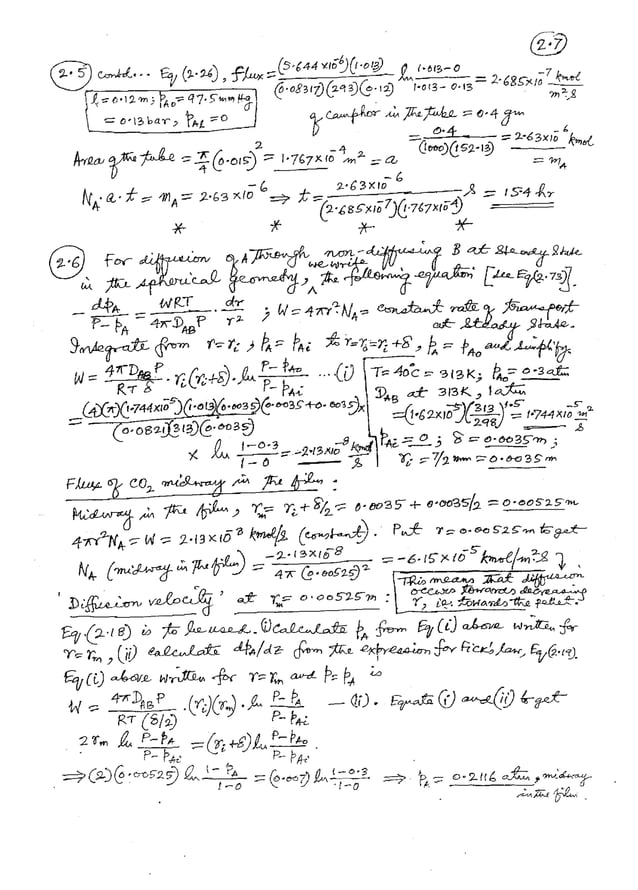 2.7
2.5 contd... Eq (2.26), flux = (5.644×10⁻⁶)(1.013) / (0.08317)(293)(0.12) ln (1.013-0)/(1.013-0.13) = 2.685×10⁻⁷ kmol/m².s
l = 0.12 m; p_A0 = 97.5 mm Hg
= 0.13 bar, p_Al = 0
of camphor in the tube = 0.4 gm
= 0.4/(1000)(152.13) = 2.63×10⁻⁶ kmol
= m_A
Area of the tube = π/4 (0.015)² = 1.767×10⁻⁴ m² = a
N_A·a·t = m_A = 2.63×10⁻⁶ ⇒ t = 2.63×10⁻⁶ / (2.685×10⁻⁷)(1.767×10⁻⁴) s = 15.4 hr
* * * *
2.6 For diffusion of A through non-diffusing B at steady state
in the spherical geometry, we write the following equation [see Eq(2.73)].
- dp_A/(P-p_A) = WRT/(4π D_AB P) · dr/r² ; W = 4πr²·N_A = constant rate of transport
at steady state.
Integrate from r = r_i, p_A = p_Ai to r = r_o = r_i+δ, p_A = p_A0 and simplify.
W = 4π D_AB P/(RT δ) · r_i(r_i+δ)·ln (P-p_A0)/(P-p_Ai) ... (i)
T = 40°C = 313K; p_A0 = 0.3 atm
D_AB at 313K, 1 atm
= (1.62×10⁻⁵)(313/298)^1.5 = 1.744×10⁻⁵ m²/s
p_Ai = 0; δ = 0.0035 m;
r_i = 7/2 mm = 0.0035 m
= (4)(π)(1.744×10⁻⁵)(1.013)(0.0035)(0.0035+0.0035) / (0.0821)(313)(0.0035) ×
× ln (1-0.3)/(1-0) = -2.13×10⁻⁸ kmol/s
Flux of CO₂ midway in the film:
Midway in the film, r_m = r_i + δ/2 = 0.0035 + 0.0035/2 = 0.00525 m
4πr²N_A = W = 2.13×10⁻⁸ kmol/s (constant). Put r = 0.00525 m to get
N_A (midway in the film) = -2.13×10⁻⁸ / 4π (0.00525)² = -6.15×10⁻⁵ kmol/m².s
This means that diffusion
occurs towards decreasing
r, i.e. towards the pellet.
'Diffusion velocity' at r_m = 0.00525 m:
Eq. (2.18) is to be used. (i) calculate p_A from Eq (i) above written for
r = r_m, (ii) calculate dp_A/dz from the expression for Fick's law, Eq.(2.19).
Eq(i) above written for r = r_m and p = p_A is
W = 4π D_AB P / RT (δ/2) · (r_i)(r_m) · ln (P-p_A)/(P-p_Ai) — (ii). Equate (i) and (ii) to get
2 r_m ln (P-p_A)/(P-p_Ai) = (r_i+δ) ln (P-p_A0)/(P-p_Ai).
⇒ (2)(0.00525) ln (1-p_A)/(1-0) = (0.007) ln (1-0.3)/(1-0) ⇒ p_A = 0.2116 atm, midway
in the film.